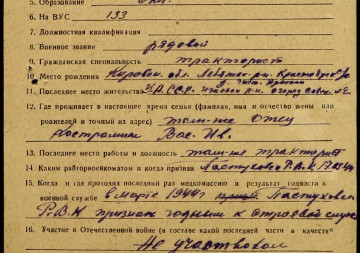 5. Образование
6. На ВУС 133
7. Должностная квалификация
8. Военное звание рядовой
9. Гражданская специальность тракторист
10. Место рождения Кировск. обл.
11. Последнее место жительства
12. Где проживает в настоящее время семья (фамилия, имя и отчество жены или
родителя и точный их адрес) там-же отец
Костромин Вас. Ив.
13. Последнее место работы и должность там-же тракторист
14. Каким райгорвоенкоматом и когда призван Р.В.К.
15. Когда и где проходил последний раз медкомиссию и результат годности к
военной службе 6 марта 1944г
Р.В.К признан годным к строевой службе
16. Участие в Отечественной войне (в составе какой последней части и в качестве
Не участвовал